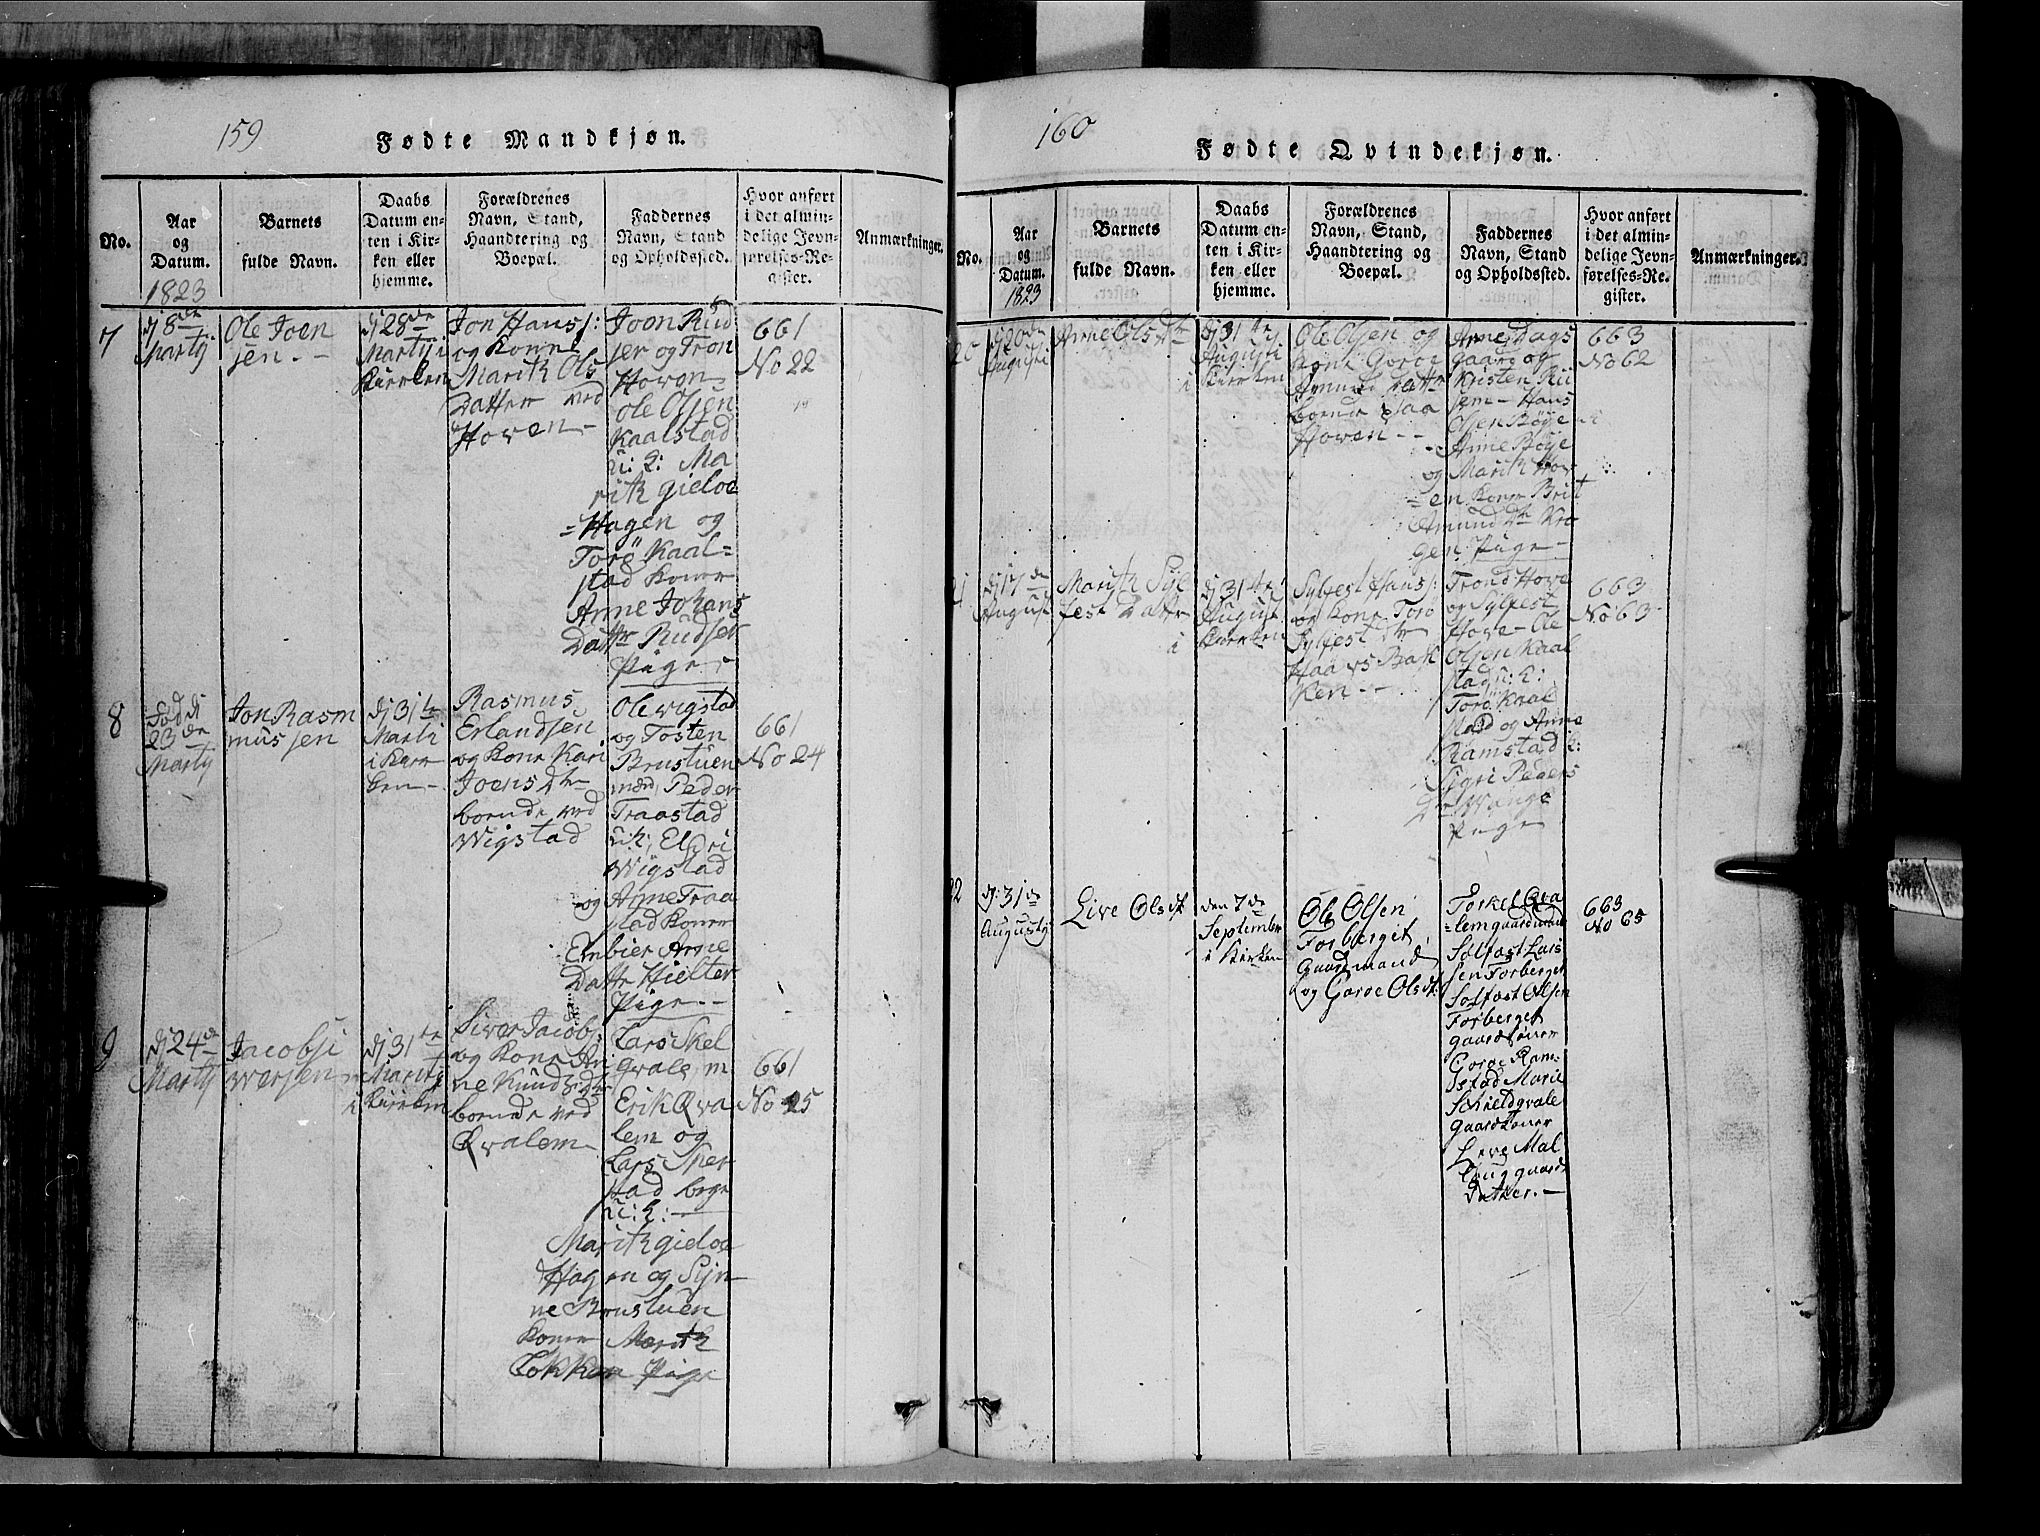 159
Fødte Mandkjøn.
No.
Aar
og
Datum.
1823
Barnets
fulde Navn.
Daabs
Datum en-
ten i Kir-
ken eller
hjemme.
Forældrenes
Navn, Stand,
Haandtering og
Boepæl.
Faddernes
Navn, Stand
og Opholdssted.
Hvor anført
i det almin-
delige Jevn-
førelses-Re-
gister.
Anmærkninger.
7
dj 8de
Martij
Ole Joen
sen. -
dj 28de
Martij i
Kierken
Jon Hans:
og Kone
Marith Ols
Datter ved
Hoven -
Joon Rud
ser og Tron
Hoven
Ole Olsen
Kaalstad
u: k: Ma
rith gieloe
= Hagen og
Torø Kaal=
stad Koner
Anne Johans
Dattr Rudser
Pige -
661
No 22
8
Fød dj
23de
Martij
Jon Rasm
mussen
dj 31te
Marti
i Kier
ken -
Rasmus
Erlandsen
og Kone Kari
Joens Dtr
boende ved
Wigstad
Ole wigstad
og Tosten
Brustuen
mænd, Peder
Traastad
u: k: Eldri
Wigstad
og Anne Traa
stad Koner
Embier Arne
Dattr Hielter
Pige - -
661
No 24
9
dj 24de
Martij
Jacob Si
wersen
dj 31te
Martij
i Kierken
Siver Jacobs:
og Kone An
ne Knuds Dtr
boende ved
Qvalem -
Lars Skel
qvale, m
Erik Qva
lem og
Lars Sker
stad begr
u: k: -
Marith gieloe
Hagen og Syn-
ne Brustuen
Koner Marith
Løkken Pige
661
No 25
160
Fødte Qvindekjøn.
No.
Aar
og
Datum.
1823
Barnets
fulde Navn.
Daabs
Datum en-
ten i Kir-
ken eller
hjemme.
Forældrenes
Navn, Stand,
Haandtering og
Boepæl.
Faddernes
Navn, Stand
og Opholdssted.
Hvor anført
i det almin-
delige Jevn-
førelses-Re-
gister.
Anmærkninger.
20
dj 20de
Augusti
Anne Ols Dtr
dj 31te
Augusti
i Kierken
Ole Olsen og
Kone Goroe
Amund Dattr
boende paa
Hoven - -
Arne Dags
gaard og
Kristen Rii
sem - Hans
Olsen Bøye
- Anne Bøye
og Marith Hov
= en Koner Brit
Amund Dtr Kro
gen Pige -
663
No 62
21
dj 17de
August
Marith Syl
fest Datter
dj 31te
August
i Kierken
Sylfest Hans:
og Kone Torø
Sylfest Dtr
Haavs Bak
ken - -
Trond Hove
og Sylfest
Hove - Ole
Olsen Kaal
stad u: k:
Torø Kaal
stad og Anne
Ramstad k:
Sigri Peders
Dtr Wange
Pige
663
No 63
22
dj: 31de
Augusty
Live Olsdt
den 7de
September
i Kirken
Ole Olsen
Forberget
Gaardmand
og Goroe Olsdt:
Torkel Qva
=lem gaardmand
Solfast Lars
sen Forberget
Solfast Olsen
Forberget
gaardkoner
Goroe Ram=
stad Marie
Schieldqvale
gaardkoner
Live Mal
gaard
Datter. -
663
No 65